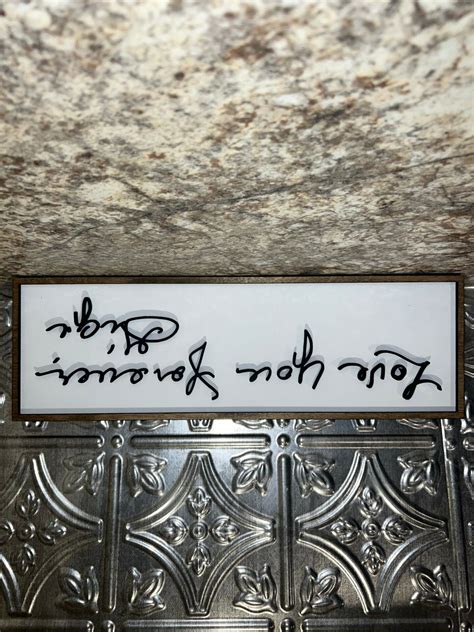 Love you forever,
Gigi